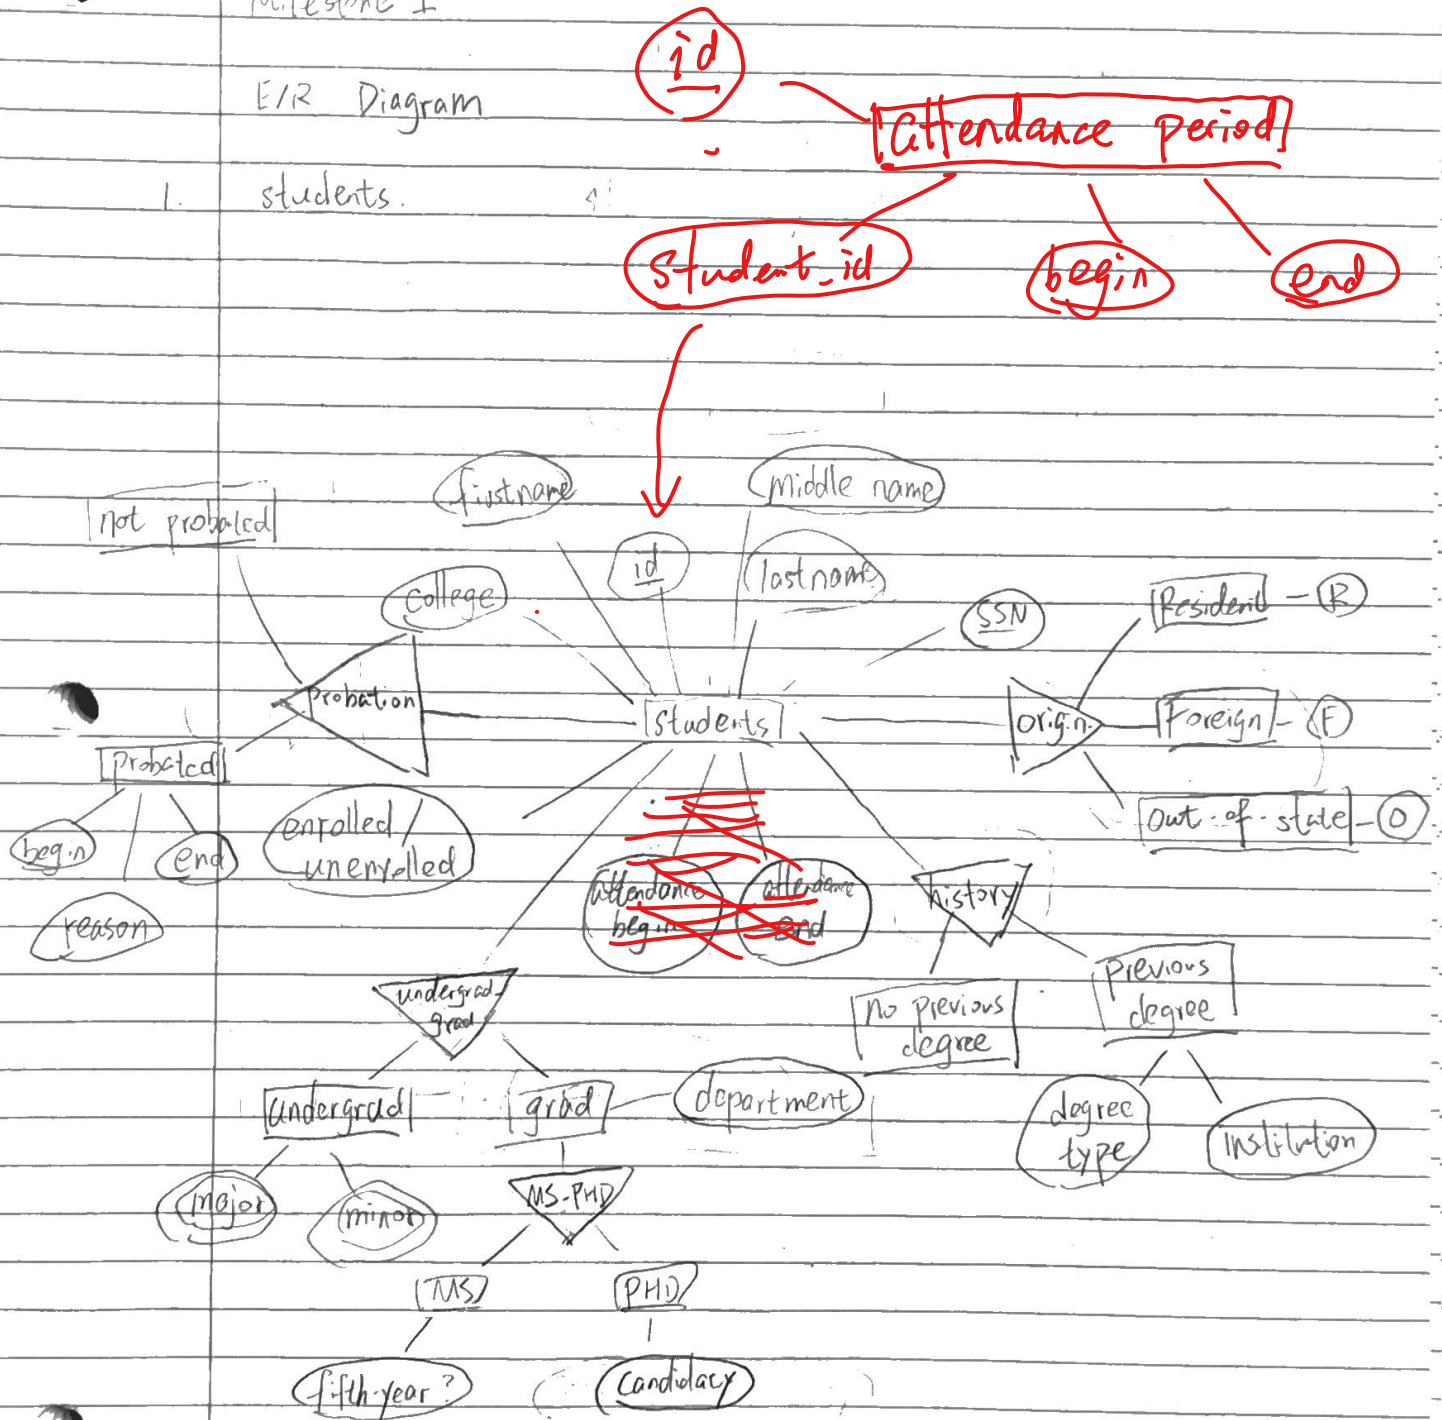 Milestone 1
E/R Diagram
1. students.
id
attendance period
student_id
begin
end
firstname
middle name
not probated
id
lastname
college
SSN
Resident - R
probation
students
origin
Foreign - F
probated
out-of-state - O
begin
end
enrolled /
unenrolled
reason
attendance
begin
attendance
end
history
undergrad-
grad
no previous
degree
previous
degree
undergrad
grad
department
degree
type
institution
major
minor
MS-PHD
MS
PHD
fifth-year?
candidacy